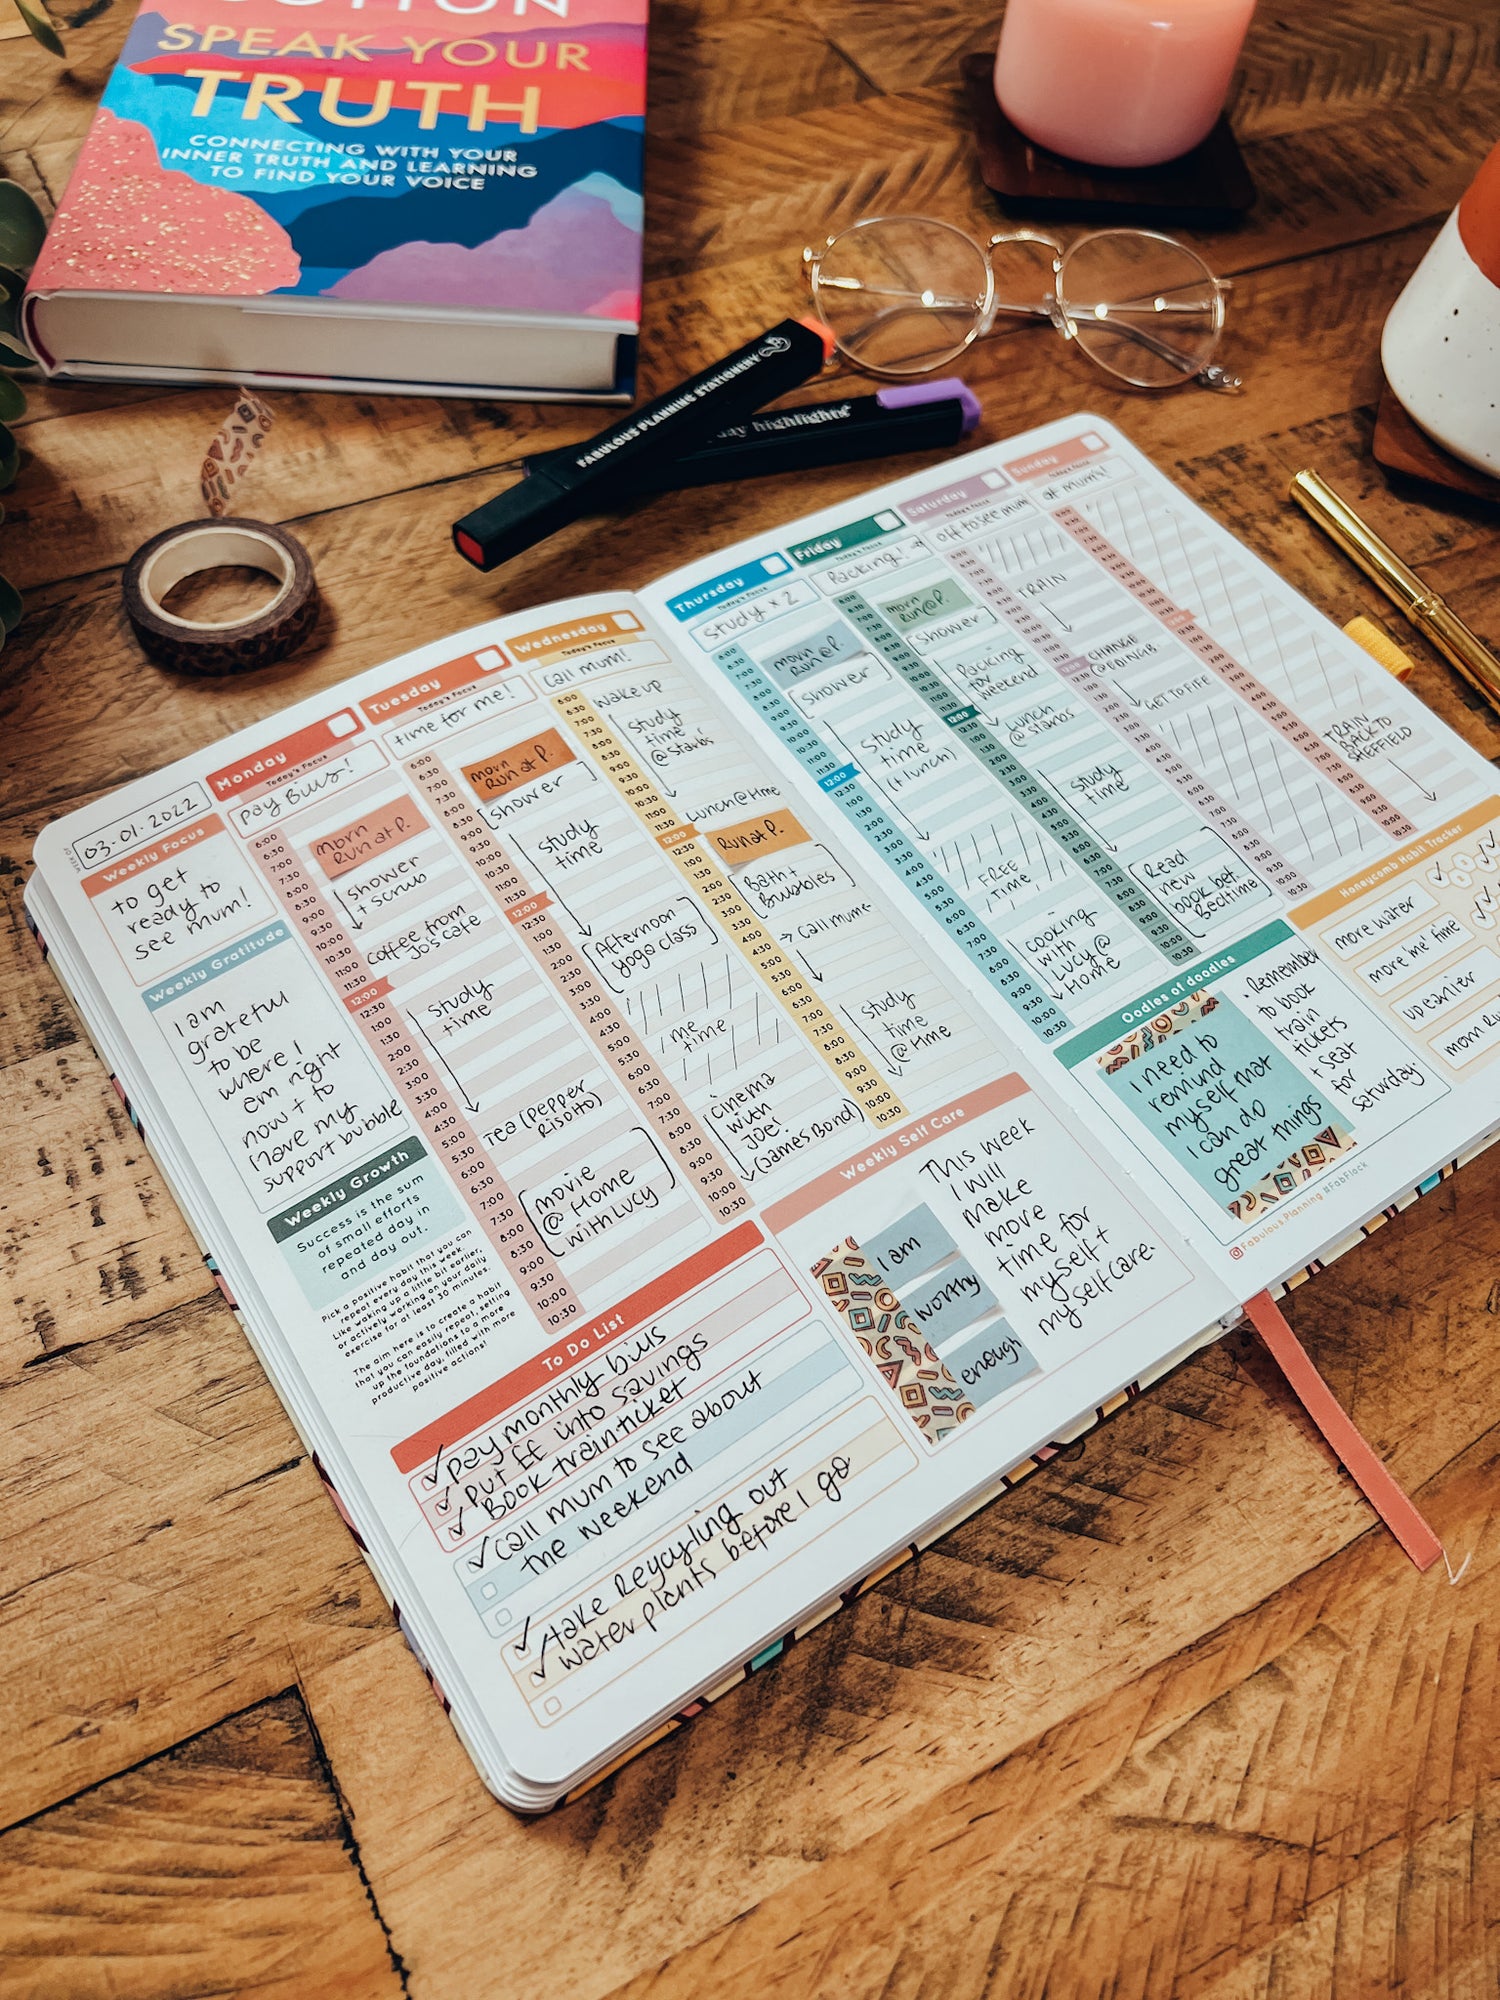 COTTON
SPEAK YOUR
TRUTH
CONNECTING WITH YOUR
INNER TRUTH AND LEARNING
TO FIND YOUR VOICE
FABULOUS PLANNING STATIONERY
highlighter
WEEK OF
03.01.2022
Weekly Focus
to get
ready to
see mum!
Weekly Gratitude
I am
grateful
to be
where I
em right
now + to
have my
support bubble
Weekly Growth
Success is the sum
of small efforts
repeated day in
and day out.
Pick a positive habit that you can
repeat every day this week.
Like waking up a little bit earlier,
or actively working on your daily
exercise for at least 30 minutes.
The aim here is to create a habit
that you can easily repeat, setting
up the foundations to a more
productive day, filled with more
positive actions!
Monday
Today's Focus
Pay Bills!
morn
Run at P.
shower
+ scrub
coffee from
Jo's cafe
study
time
Tea (pepper
Risoto)
movie
@ Home
with Lucy
Tuesday
Today's Focus
time for me!
morn
Run at P.
shower
study
time
Afternoon
yoga class
me
time
cinema
with
JOE!
(James Bond)
Wednesday
Today's Focus
call mum!
wake up
study
time
Lunch@Hme
Run at P.
Bath +
Bubbles
→ call mum
study
time
@ Hme
Thursday
Today's Focus
study x 2
morn
Run@P.
shower
study
time
(+ lunch)
FREE
TIME
cooking
with
Lucy @
Home
Friday
Today's Focus
Packing!
morn
Run@P.
shower
packing
for
weekend
Lunch
study
time
Read
new
book bef.
Bedtime
Saturday
Today's Focus
off to see mum
TRAIN
CHANGE
@EDINGB.
GET TO FIFE
Sunday
Today's Focus
at mum's!
TRAIN
BACK TO
SHEFFIELD
To Do List
✓ pay monthly bills
✓ put ££ into savings
✓ Book train ticket
✓ call mum to see about
the weekend
✓ take Reycyling out
✓ water plants before I go
Weekly Self Care
This week
I will
make
more
time for
myself +
my selfcare.
I am
worthy
enough
Oodles of doodles
I need to
remind
myself that
I can do
great things
• Remember
to book
train
tickets
+ seat
for
Saturday
Fabulous Planning #FabFlock
Honeycomb Habit Tracker
more water
more 'me' time
up earlier